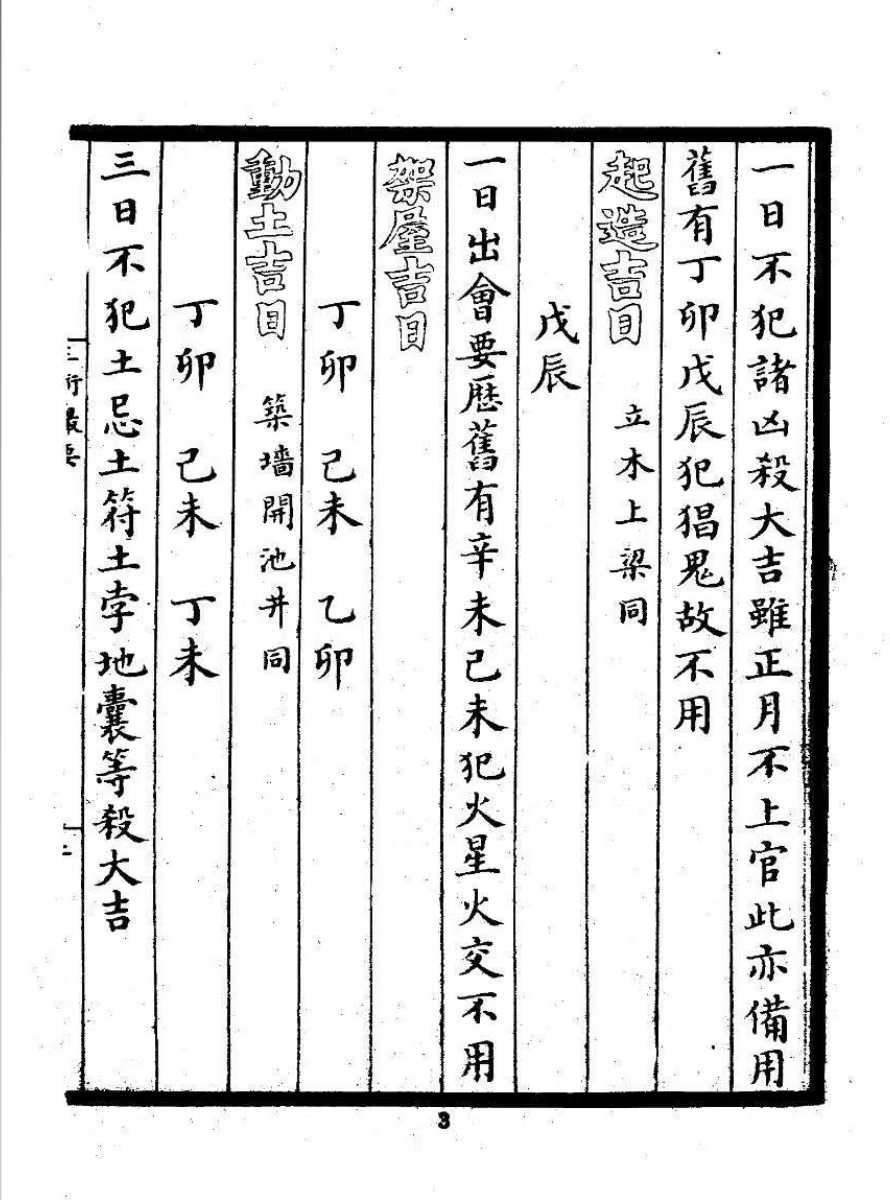 一日不犯諸凶殺大吉雖正月不上官此亦備用
舊有丁卯戊辰犯猖鬼故不用
起造吉日　立木上梁同
戊辰
一日出會要歷舊有辛未己未犯火星火交不用
架屋吉日
丁卯　己未　乙卯
動土吉日　築墻開池井同
丁卯　己未　丁未
三日不犯土忌土符土孛地囊等殺大吉
3